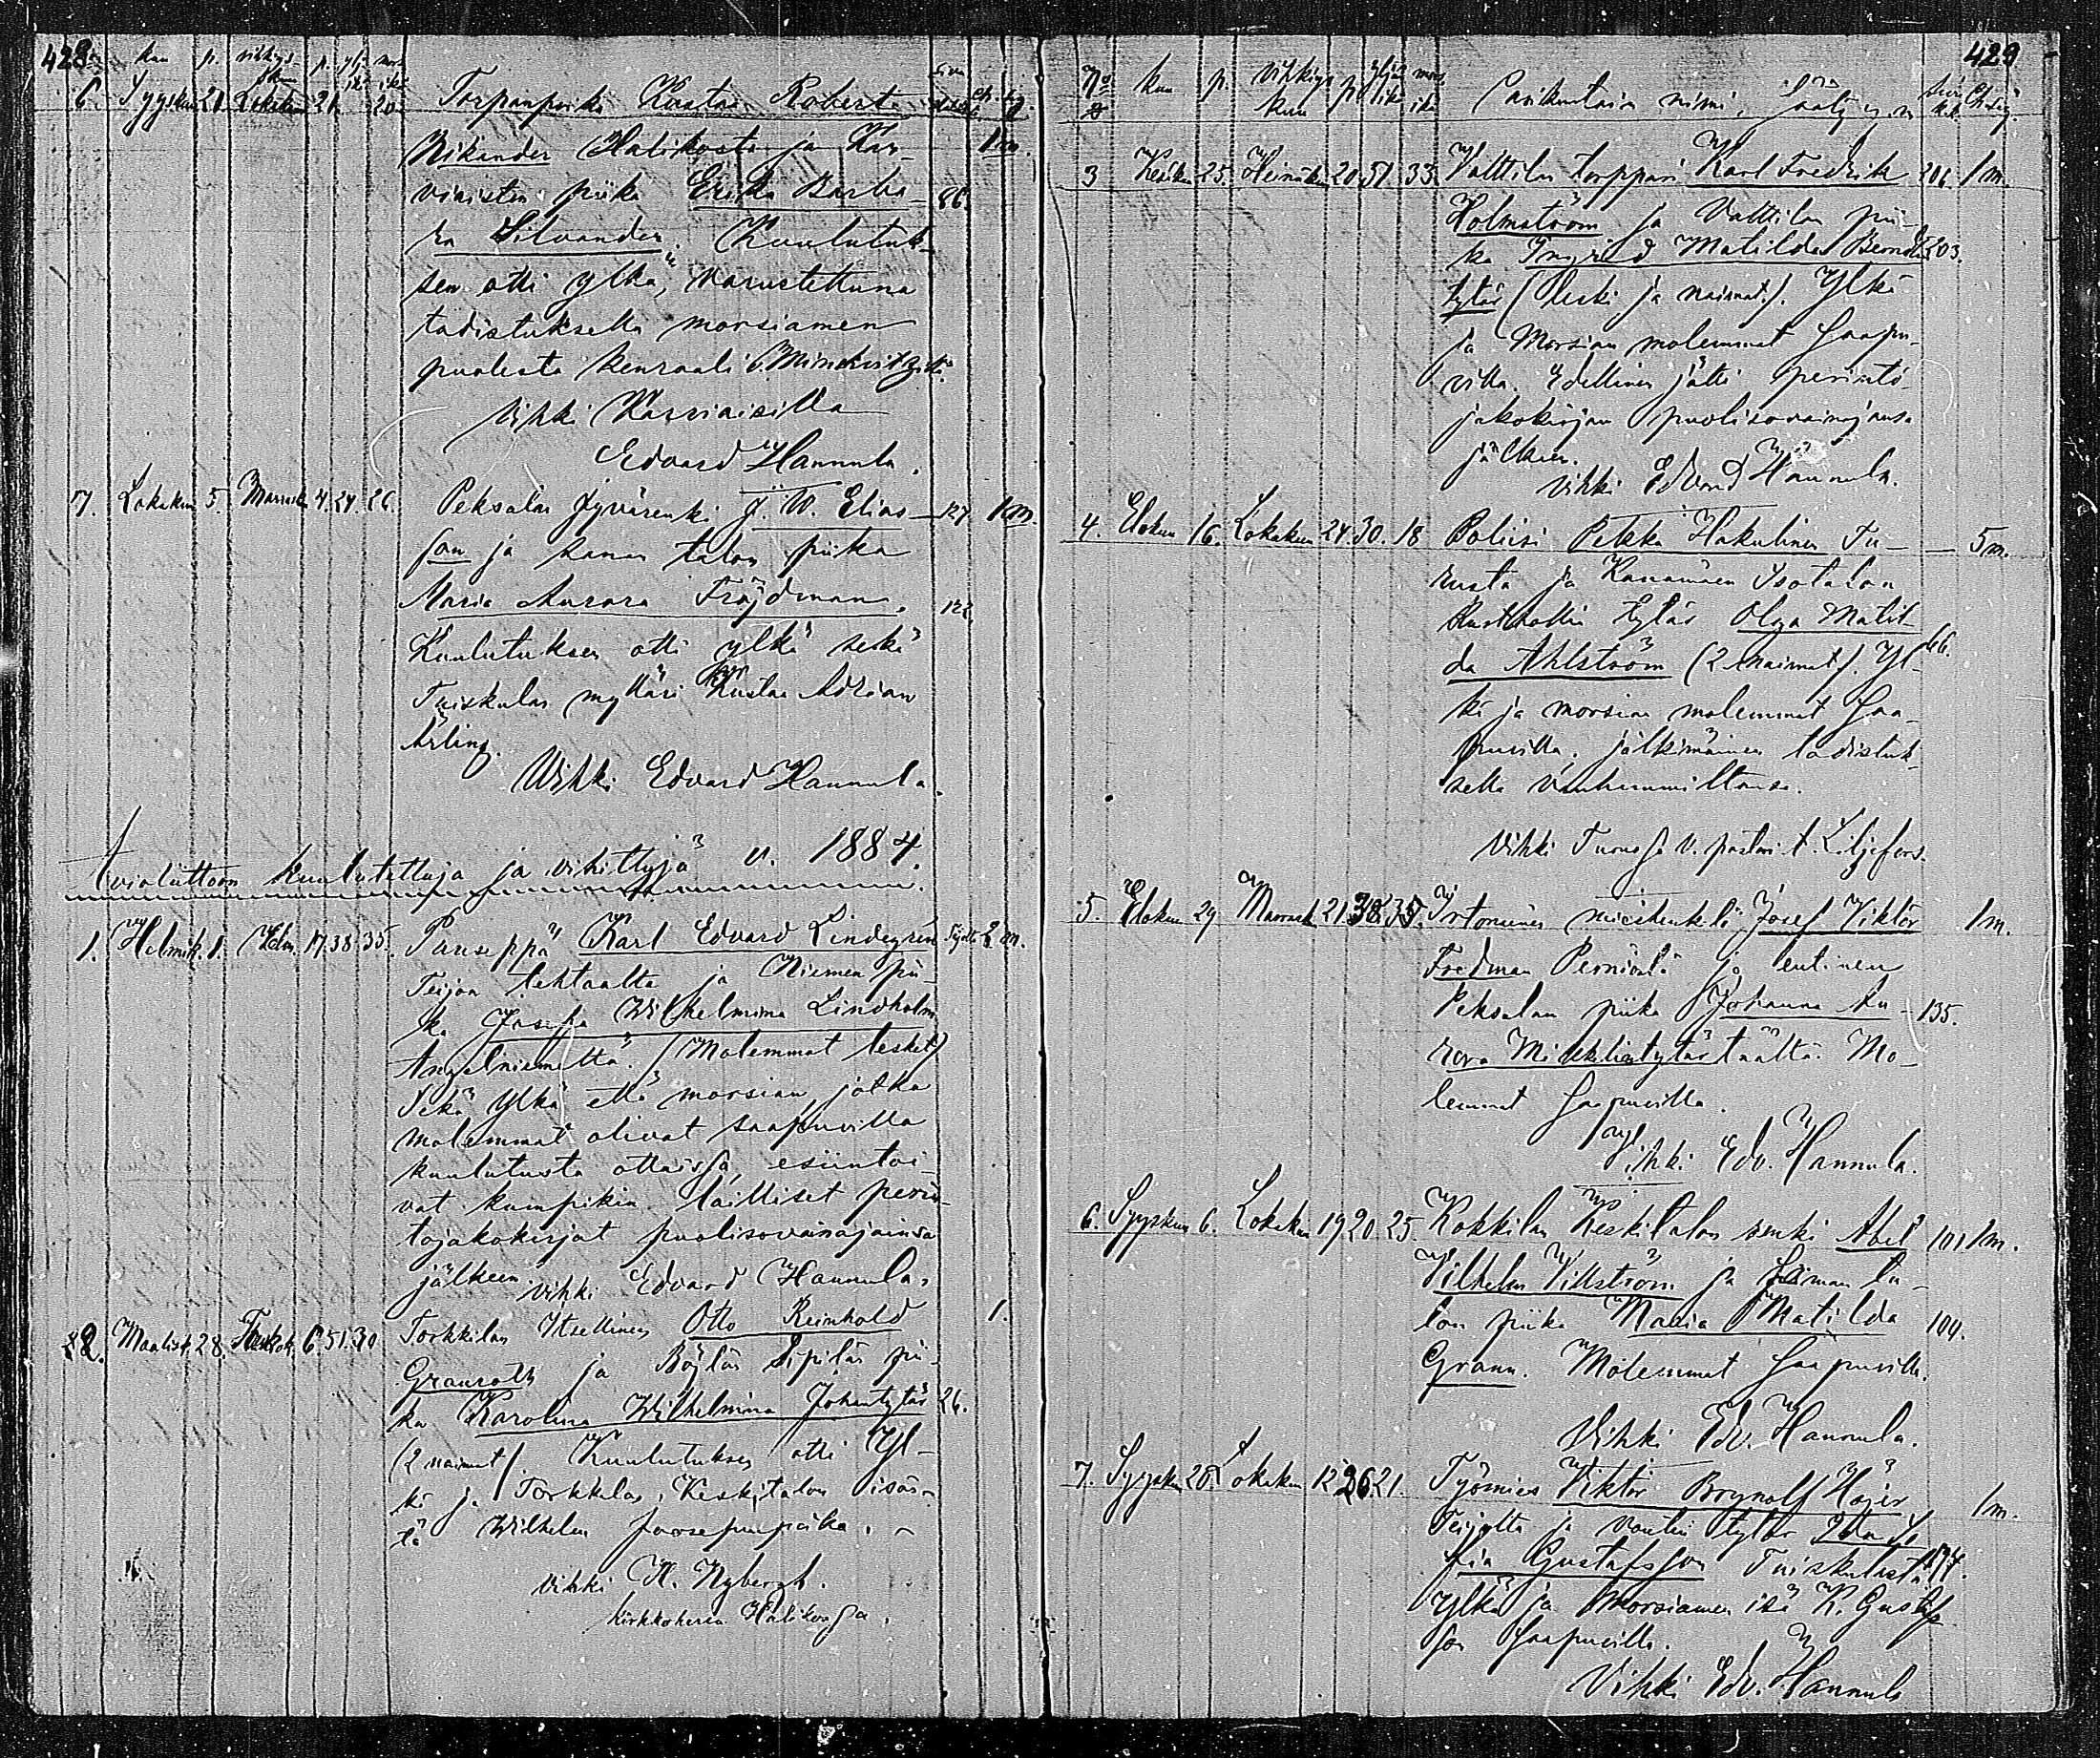 428
kuu p. vihkys kuu p. ylj. ikä mors. ikä
6. Syysku 21. Lokaku 21 20 Torpanpoika Kustaa Robert
Nikander Halikosta ja Kar- 1 m.
viaisten piika Erika Barba- 86.
ra Silvander. Kuulutuk-
sen otti ylkä, varustettuna
todistuksella morsiamen
puolesta kenraali v. Minckwitziltä.
Vihki Karviaisilla
Edvard Hannula.
7. Lokakuu 5. Marrask. 4. 24. 26. Peksalan Jyvärenki J. W. Elias- 127 1 m.
son ja saman talon piika
Maria Aurora Fröjdman. 122.
Kuulutuksen otti ylkä sekä
Tuiskulan mylläri Kustaa Adrian
Ärling.
Vihki Edvard Hannula.
Avioliittoon kuulutettuja ja vihittyjä v. 1884.
1. Helmik. 1. Helm. 17. 38. 35. Puuseppä Karl Edvard Lindegren 2 m.
Teijon tehtaalta ja Niemen pii-
ka Josefa Wilhelmina Lindholm
Angelniemeltä. (Molemmat lesket)
Sekä ylkä että morsian jotka
molemmat olivat saapuvilla
kuulutusta ottaissa, esiintoi-
vat kumpikin lailliset perin-
töjakokirjat puolisovainajainsa
jälkeen. Vihki Edvard Hannula.
2. Maalisk. 28. Toukok. 6 51. 30 Torkkilan Itsellinen Otto Reinhold 1.
Granroth ja Röylän Sipilän pii-
ka Karolina Wilhelmina Johantytär 26.
(2 naimat). Kuulutuksen otti Yl-
kä ja Torkkilan Keskitalon isän-
tä Wilhelm Joosepinpoika.
Vihki K. Nybergh.
kirkkoherra Halikossa.
429
No kuu p. Vihkiys kuu p yljän ikä mors. ikä Pariskuntain nimi, sääty y. m. Sivu
3 Kesäkuu 25. Heinäkuu 20 51 33. Valttilan torppari Karl Fredrik 206. 1 m.
Holmström ja Valttilan pii-
ka Ingrid Matilda Berndtin- 203.
tytär (Leski ja naimat.). Ylkä
ja Morsian molemmat saapu-
villa. Edellinen jätti perintö-
jakokirjan puolisovainajansa
jälkeen.
Vihki Edvard Hannula.
4. Elokuu 16. Lokakuu 24. 30. 18 Poliisi Pekka Hakulinen Tu- — 5 m.
rusta ja Kanamäen Isotalon
Rusthollin tytär Olga Matil-
da Ahlström (2 naimat). Yl- 66.
kä ja morsian molemmat saa-
puvilla, jälkimäinen todistuk-
sella vanhemmiltansa.
Vihki Turussa v. pastori A. Liljefors.
5. Elokuu 29 Marrask 21. 38. 35. Irtonainen mieshenkilö Josef Viktor 1 m.
Fredman Perniöstä ja entinen
Peksalan piika Johanna Au- 135.
rora Mikkelintytär täältä. Mo-
lemmat saapuvilla.
Vihki Edv. Hannula.
6. Syyskuu 6. Lokakuu 19 20. 25. Kokkilan Keskitalon renki Abel 101 1 m.
Vilhelm Villström ja saman ta-
lon piika Maria Matilda 104.
Grann. Molemmat saapuvilla.
Vihki Edv. Hannula.
7. Syysku 20. Lokakuu 12 26 21. Työmies Viktor Brynolf Höijer 1 m.
Teijolta ja voutin tytär Ida So-
fia Gustafsson Tuiskulasta 174.
Ylkä ja Morsiamen isä K. Gustafs-
son saapuvilla.
Vihki Edv. Hannula